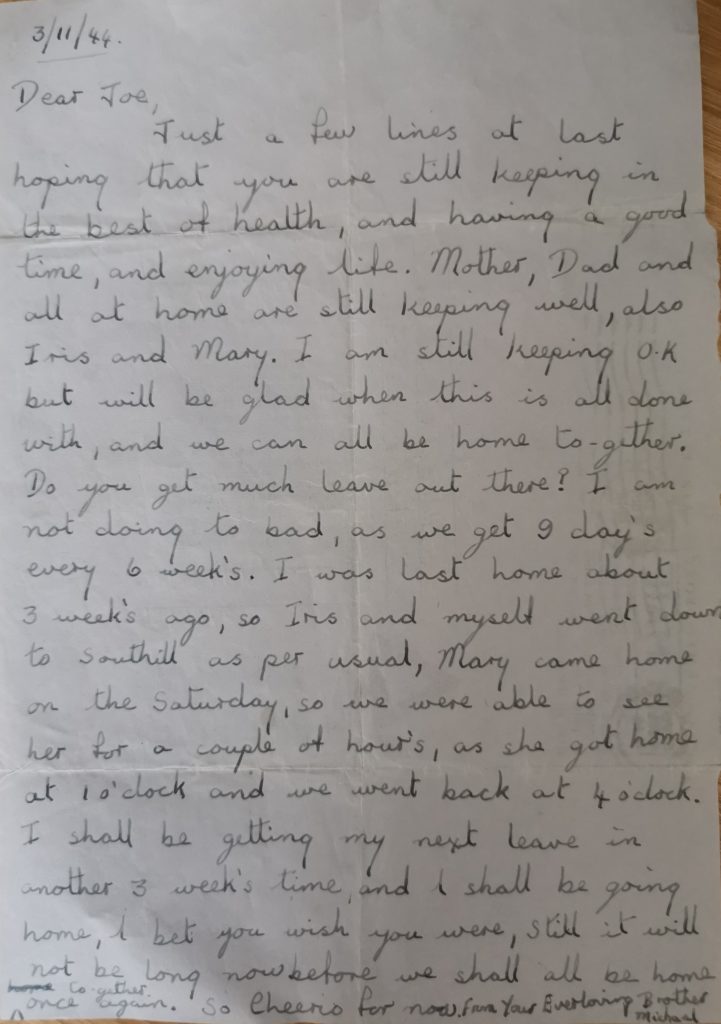 3/11/44.
Dear Joe,
Just a few lines at last
hoping that you are still keeping in
the best of health, and having a good
time, and enjoying life. Mother, Dad and
all at home are still keeping well, also
Iris and Mary. I am still keeping O.K
but will be glad when this is all done
with, and we can all be home to-gether.
Do you get much leave out there? I am
not doing to bad, as we get 9 day's
every 6 week's. I was last home about
3 week's ago, so Iris and myself went down
to Southill as per usual, Mary came home
on the Saturday, so we were able to see
her for a couple of hour's, as she got home
at 1 o'clock and we went back at 4 o'clock.
I shall be getting my next leave in
another 3 week's time, and I shall be going
home, I bet you wish you were, still it will
not be long now before we shall all be home
home to-gether
once again. So Cheerio for now. From Your Everloving Brother
Michael